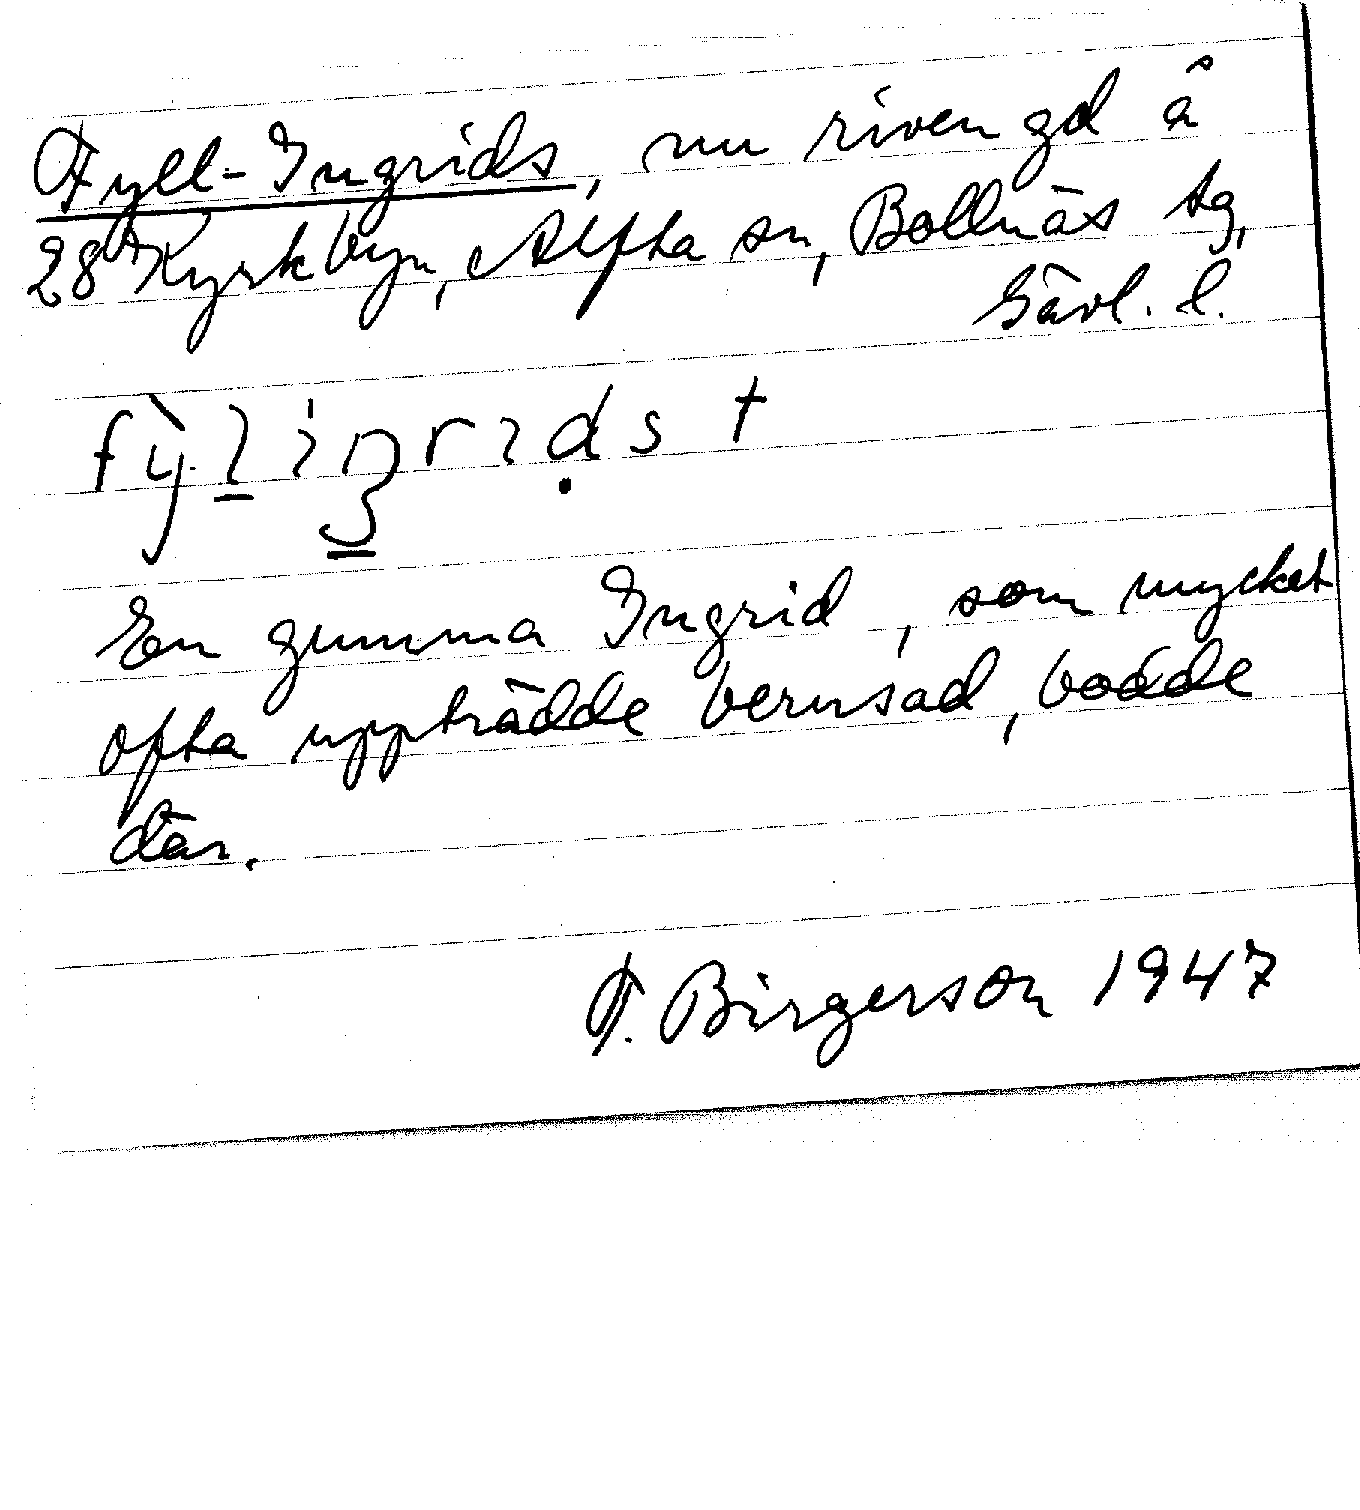 Fyll-Ingrids, nu riven gd å
28 Kyrkbyn, Alfta sn, Bollnäs tg,
Gävl. l.
En gumma Ingrid, som mycket
ofta uppträdde berusad, bodde
där.
F. Birgerson 1947